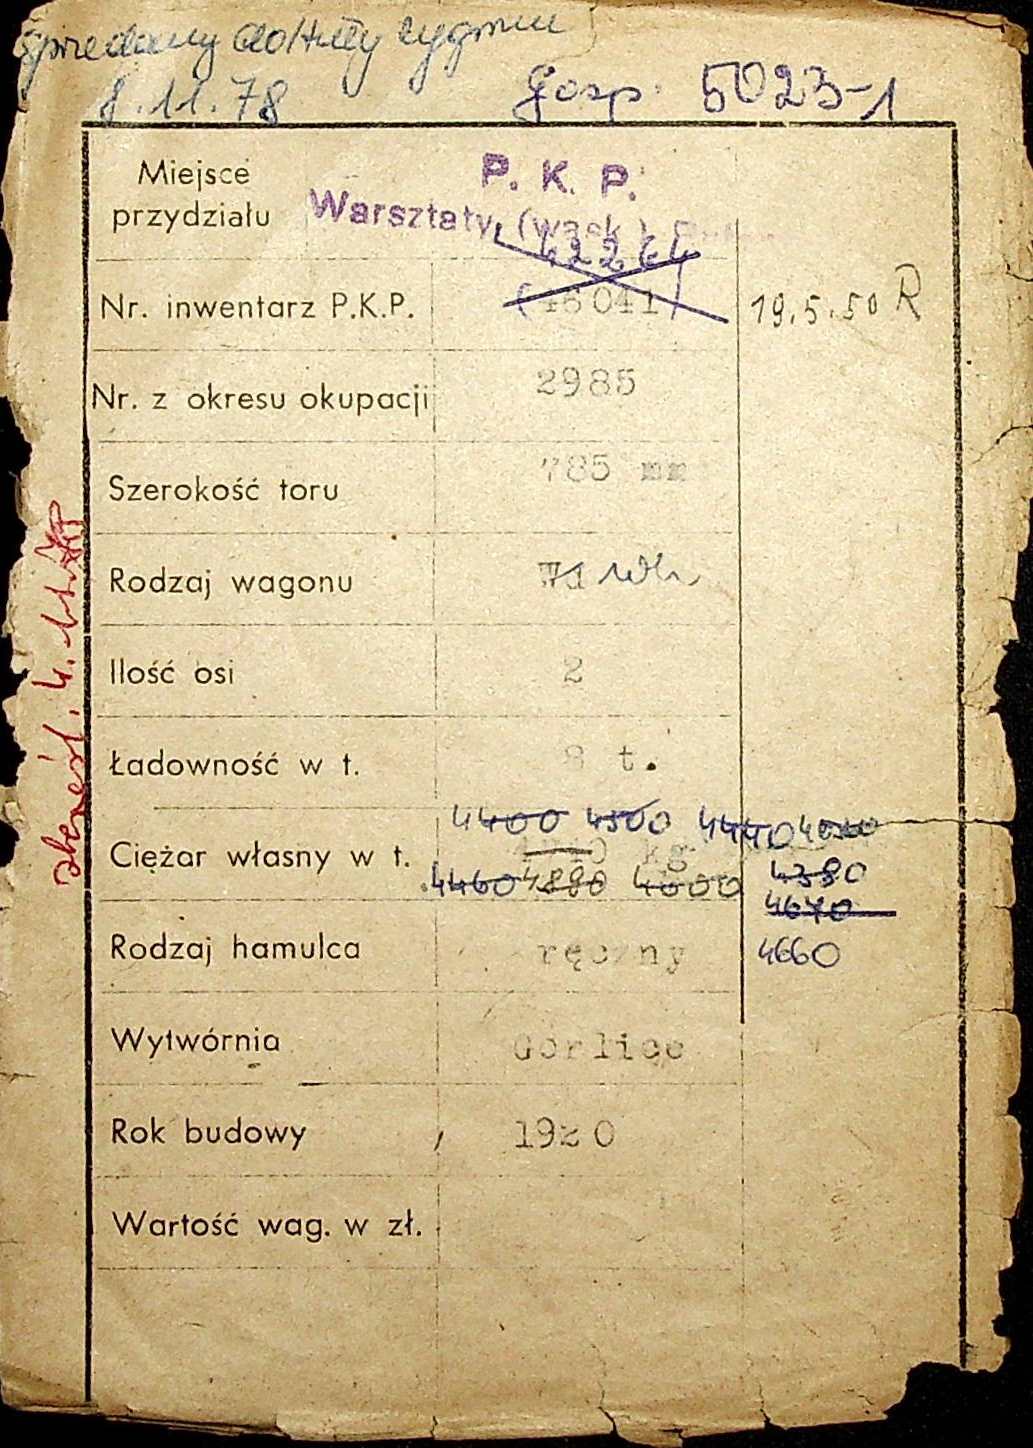 Sprzedany do Huty
8.11.78 Gosp. 5023-1
Miejsce przydziału P. K. P.
Warsztaty (wąsk.)
42264
Nr. inwentarz P.K.P. (46041) 19.5.50 R
Nr. z okresu okupacji 2985
Szerokość toru 785 mm
Rodzaj wagonu
Ilość osi 2
Ładowność w t. 8 t.
4400 4500 4440
Ciężar własny w t. kg 4380
4460 4890 4600 4670
Rodzaj hamulca ręczny 4660
Wytwórnia Gorlice
Rok budowy 1920
Wartość wag. w zł.